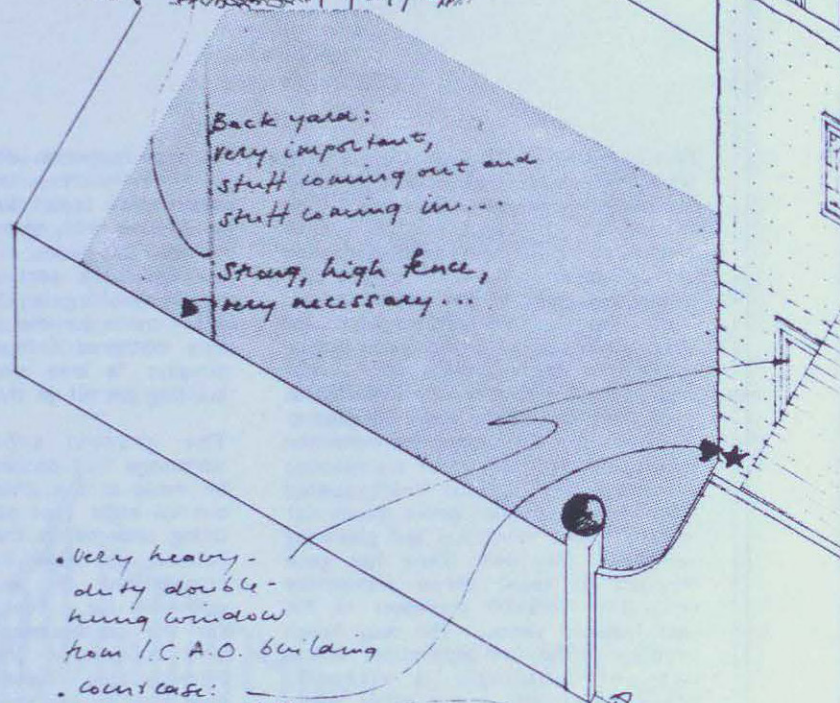 Back yard:
very important,
stuff coming out and
stuff coming in...
Strong, high fence,
very necessary...
. very heavy-
duty double-
hung window
from I.C.A.O. building
. court case: